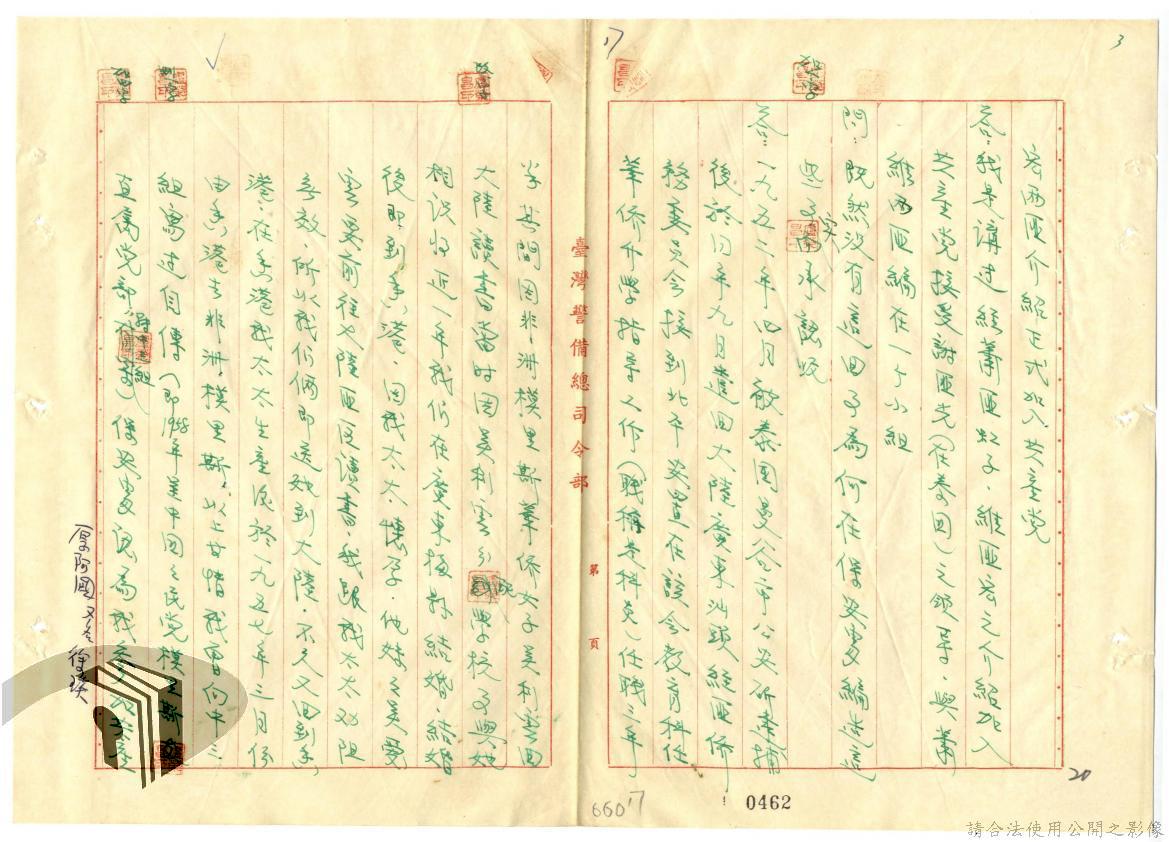 3
宏兩匪介紹正式加入共產党
答:我是講过經蕭匪虹子·維匪宏之介紹加入
共產党接受謝匪光(在泰国)之領导·與蕭
維兩匪編在一个小組
問:既然没有這回事為何在保安處編造這
些事实來承認呢
答:一九五二年四月被泰国曼谷市公安所逮捕
後於同年九月遣回大陸廣東汕頭經匪僑
務委員会接到北平安置在該会教育科任
華僑升學指导工作(職稱是科員)任職三年
半其間因非洲模里斯華僑女子美利雲回
大陸讀書當时因美利雲分 學校事與她
相识将近一年我们在廣東梅縣結婚·結婚
後即到香港·因我太太懷孕·他妹之美愛
雲要前往大陸匪区讀書·我跟我太太劝阻
無效·所以我们俩即送她到大陸·不久又回到香
港·在香港我太太生產後於一九五七年三月份
由香港去非洲·模里斯·以上甘情我曾向中三
組寫过自傳(即1958年是中国之民党模里斯
直属党部· )保安處認為我參加共產
臺灣警備總司令部
第 頁
厚阿國 又名徐瑛
17
17
660
0462
20
請合法使用公開之影像